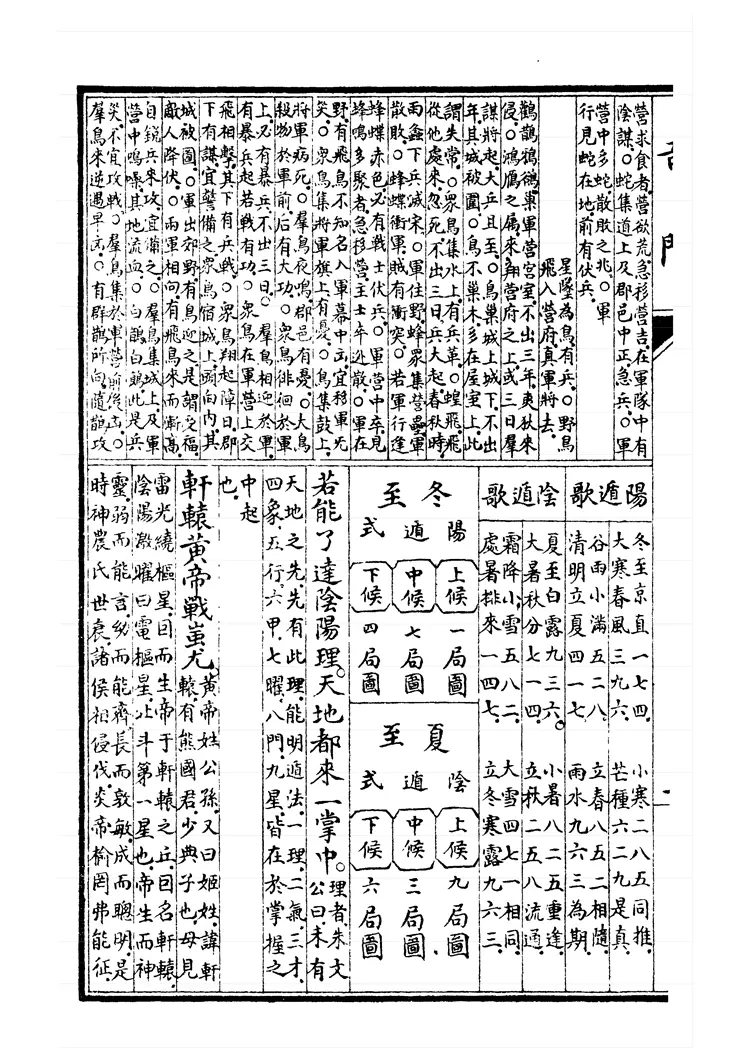 奇門
營求食者營欲荒急移營吉在軍隊中有
陰謀○蛇集道上及郡邑中正急兵○軍
營中多蛇散敗之兆○軍
行見蛇在地前有伏兵
星墜為鳥有兵○野鳥
飛入營府真軍將去
鸛鵲鵶鵒巢軍營宮室不出三年夷狄來
侵○鴻鴈之屬來翔營府之上或三日羣
謀將起大兵且至○鳥巢城上城下不出
年其城被圍○鳥不巢木多在屋室上此
謂失常○眾鳥集水上有兵革○蝗飛飛
從他處來忽死不出三日兵大起春秋時
雨螽下兵滅宋○軍住野蜂眾集營壘軍
散敗○蜂蝶衝軍賊有衝突○若軍行逢
蜂蝶赤色必有戰士伏兵○軍營中卒見
蜂鳴多聚者急移營主士卒逃散○軍在
野有飛鳥不知名入軍幕中凶宜移軍死
矣○眾鳥集將軍旗上有憂○鳥集鼓上
將軍病死○眾鳥夜鳴郡邑有憂○大鳥
殺物於軍前后有大功○眾鳥徘徊於軍
上必有暴兵不出三日○羣鳥相迎於軍
有暴兵起若戰有功○眾鳥在軍營上交
飛相擊其下有兵戰○眾鳥翔起障日郡
下有謀宜警備之眾鳥宿城上頭向内其
城被圍○軍出郊野有鳥迎之是謂之福
敵人降伏○兩軍相向有飛鳥來而漸高
自鋭兵來攻宜備之○羣鳥集城上及軍
營中鳴噪其地流血○白鷴白鵶此是兵
災不宜攻戰○羣鳥集於軍營前後凶○
羣鳥來逆遇早凶○有群鵲所向隨鵲攻
一
陽遁歌
冬至京直一七四 小寒二八五同推
大寒春風三九六 芒種六二九是真
谷雨小滿五二八 立春八五二相隨
清明立夏四一七 雨水九六三為期
陰遁歌
夏至白露九三六 小暑八二五重逢
大暑秋分七一四 立秋二五八流通
霜降小雪五八二 大雪四七一相同
處暑排來一四七 立冬寒露九六三
冬至
陽遁式
上候 一局圖
中候 七局圖
下候 四局圖
夏至
陰遁式
上候 九局圖
中候 三局圖
下候 六局圖
若能了達陰陽理天地都來一掌中理者朱文
公曰未有
天地之先先有此理能明遁法一理二氣三才
四象五行六甲七曜八門九星皆在於掌握之
中起
也
軒轅黃帝戰蚩尤黃帝姓公孫又曰姬姓諱軒
轅有熊國君少典子也母見
雷光繞樞星因而生帝于軒轅之丘因名軒轅
陰陽激曜曰電樞星北斗第一星也帝生而神
靈弱而能言幼而能齊長而敦敏成而聰明是
時神農氏世衰諸侯相侵伐炎帝榆罔弗能征